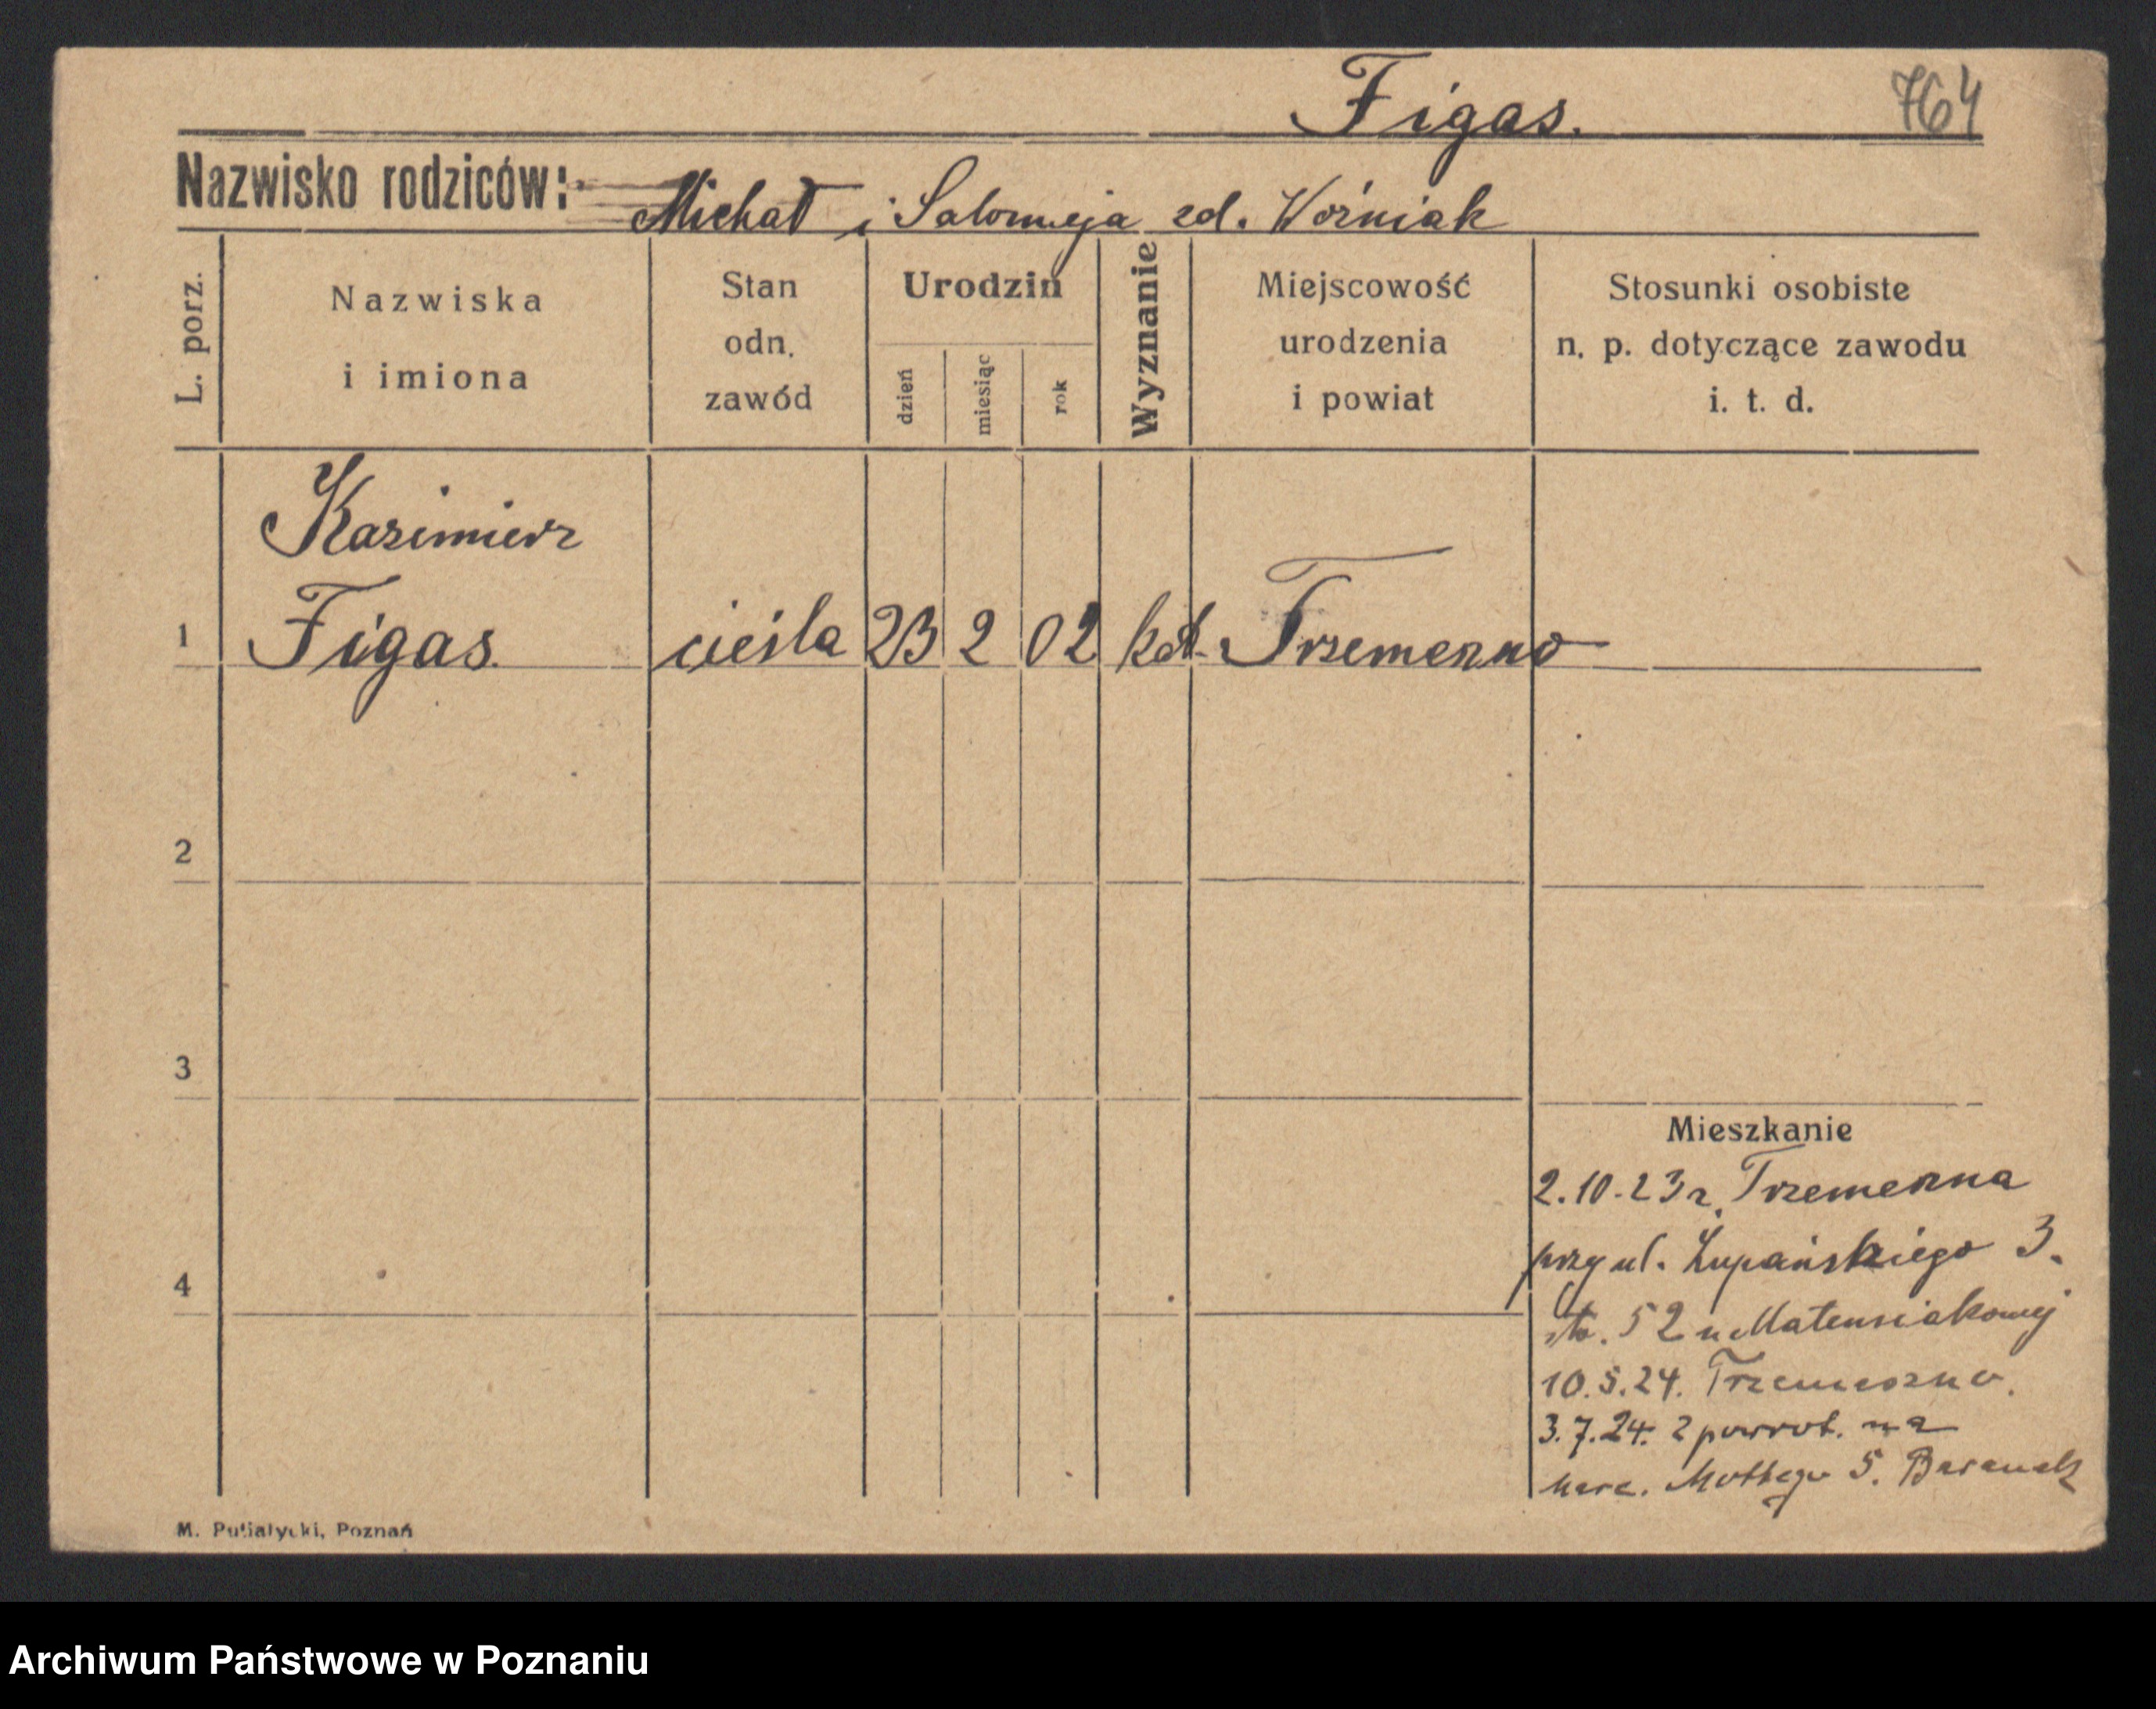 Figas. 764
Nazwisko rodziców: Michał i Salomeja zd. Woźniak
L. porz.
Nazwiska
i imiona
Stan
odn.
zawód
Urodzin
dzień
miesiąc
rok
Wyznanie
Miejscowość
urodzenia
i powiat
Stosunki osobiste
n. p. dotyczące zawodu
i. t. d.
Kazimierz
1 Figas. cieśla 23 2 02 kat. Trzemeszno
2
3
Mieszkanie
2.10.23 z Trzemeszna
przy ul. Łupańskiego 3.
4
52 u
10.5.24. Trzemeszno.
3.7.24. z powrot. na
Mottego 5.
M. Putiatycki, Poznań
Archiwum Państwowe w Poznaniu